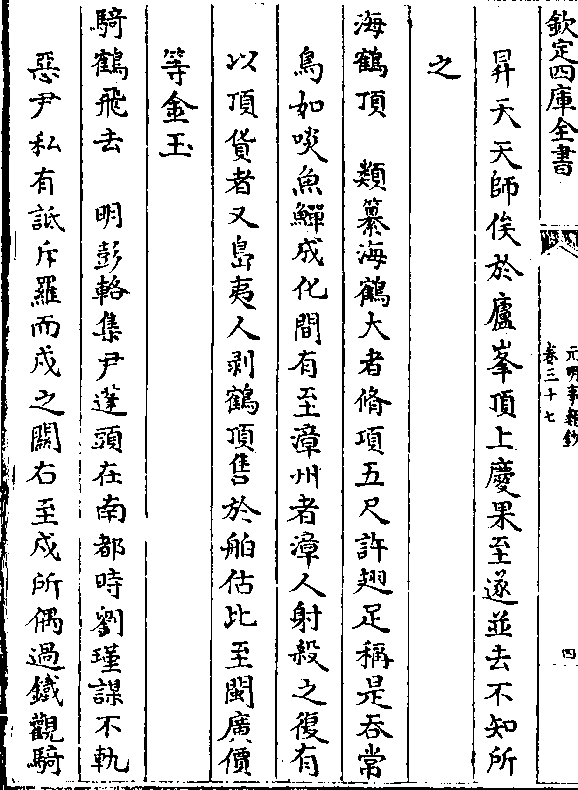 欽定四庫全書
元明事類鈔
卷三十七
四
昇天天師俟於廬峯頂上慶果至遂並去不知所
之
海鶴頂　類纂海鶴大者脩項五尺許翅足稱是吞常
鳥如啖魚鱓成化間有至漳州者漳人射殺之復有
以頂貨者又島夷人剥鶴頂售於舶估比至閩廣價
等金玉
騎鶴飛去　明彭輅集尹蓬頭在南都時劉瑾謀不軌
惡尹私有詆斥羅而戍之關右至戍所偶過鐵觀騎